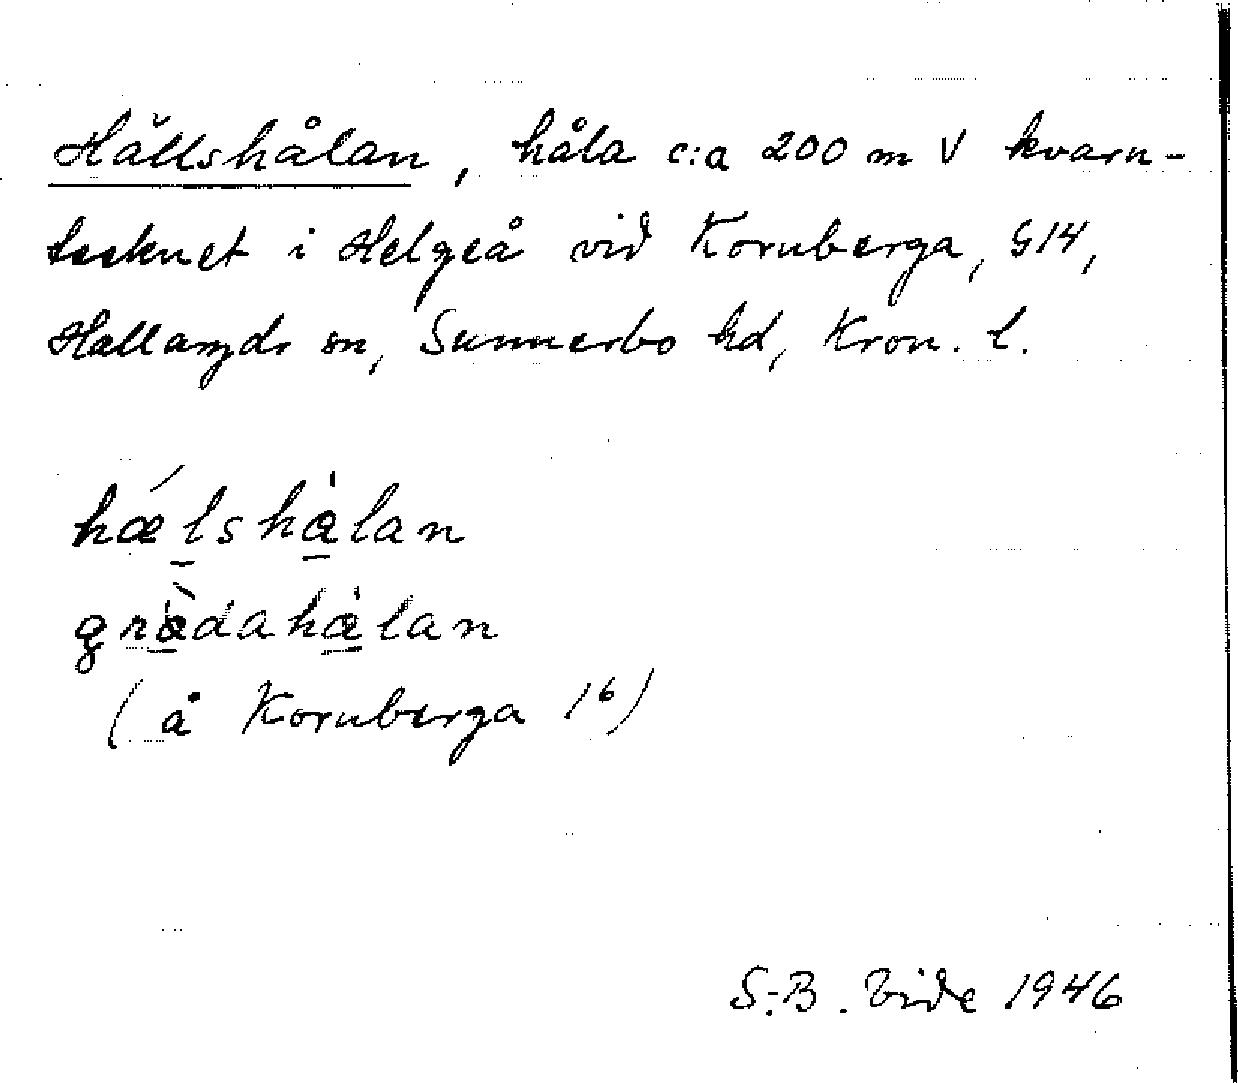 Hällshålan, håla c:a 200 m V kvarn-
tecknet i Helgeå vid Kornberga, G14,
Hallaryds sn, Sunnerbo hd, Kron. l.
hǽlshålan
grädahålan
(å Kornberga 1⁶)
S.-B. Vide 1946